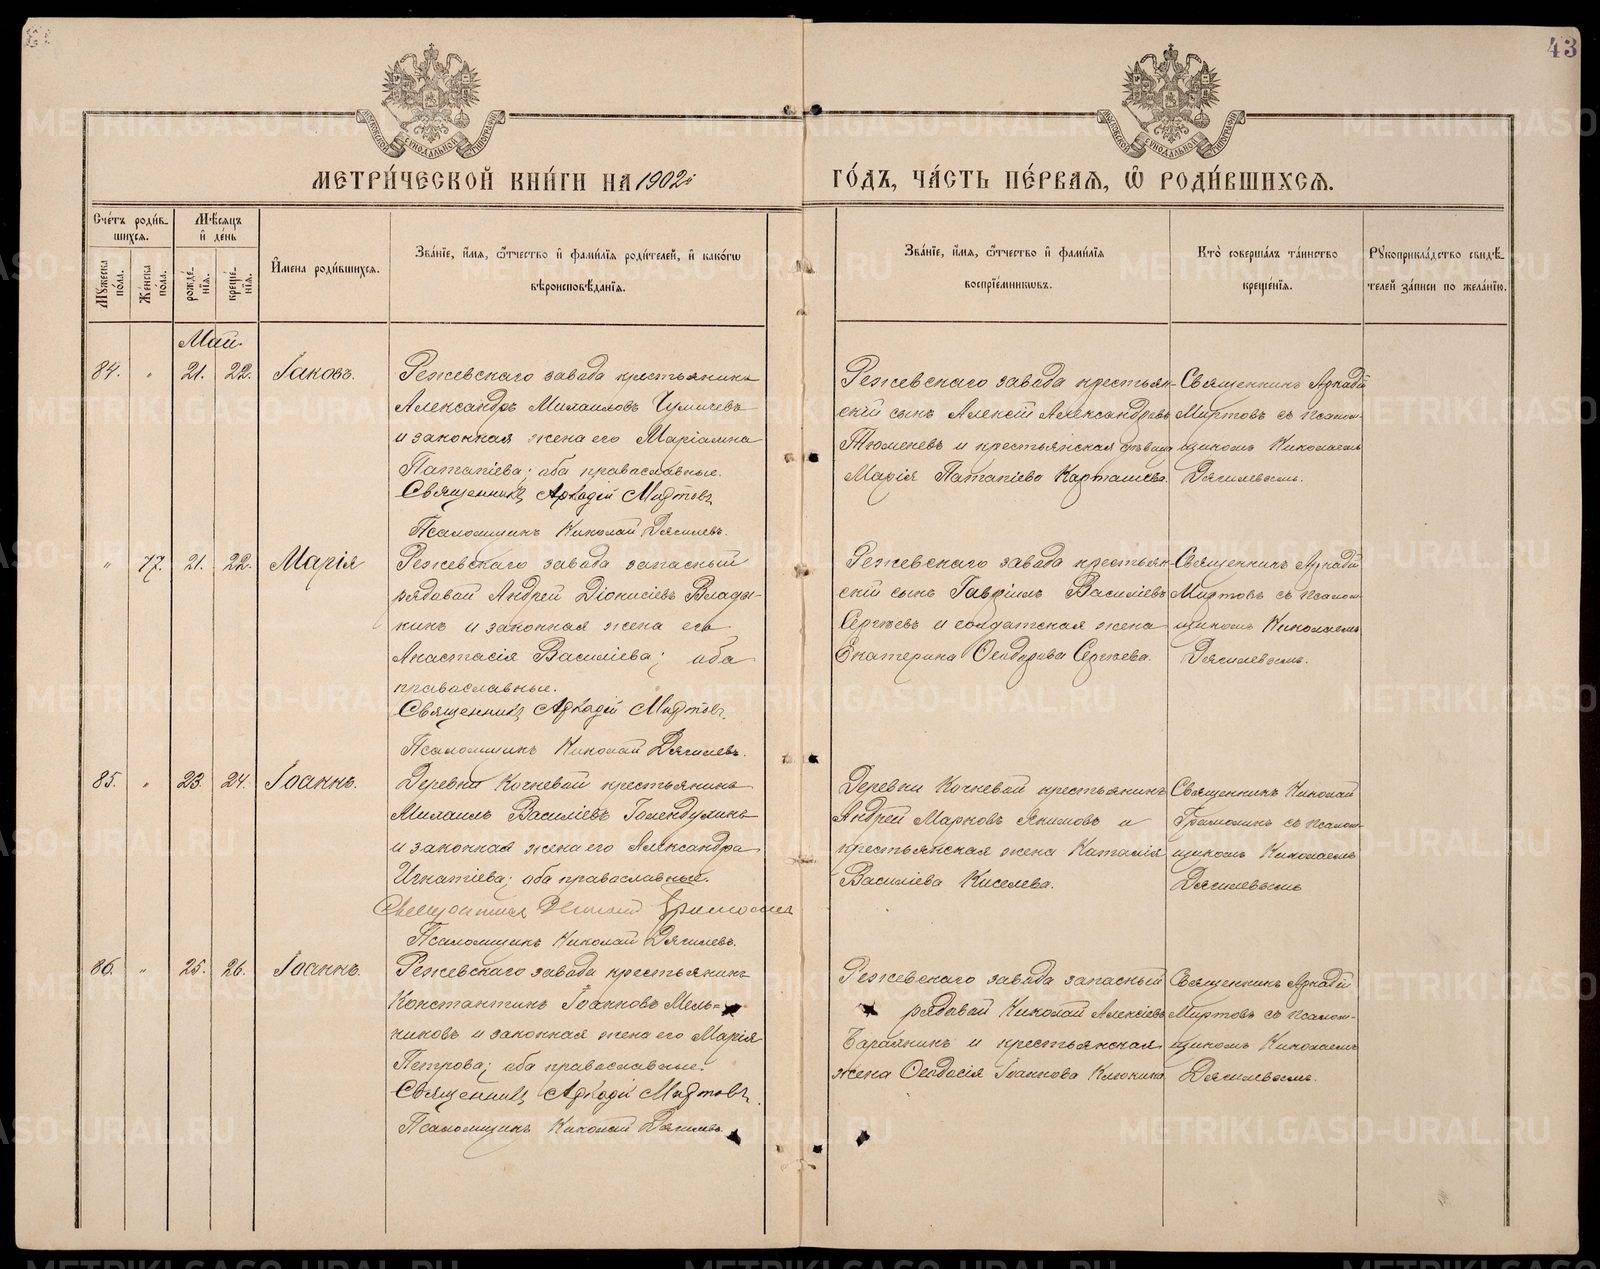 43
МЕТРИ́ЧЕСКОЙ КНИ́ГИ НА 1902й
ГО́ДЪ, ЧА́СТЬ ПЕ́РВАЯ, Ѽ РОДИ́ВШИХСЯ.
Сче́тъ роди́в-
шихся.
Мѣ́сяцъ
и҆ де́нь
Му́жеска по́ла.
Же́нска по́ла.
рожде́-
нїѧ.
креще́-
нїѧ.
И҆мена роди́вшихся.
Зва́нїе, и҆́мѧ, ѻ҆́тчество и҆ фами́лїѧ роди́телей, и҆ како́гѡ
вѣроисповѣ́данїѧ.
Зва́нїе, и҆́мѧ, ѻ҆́тчество и҆ фами́лїѧ
воспрїе́мникѡвъ.
Кто̀ соверша́лъ та́инство
креще́нїѧ.
Рꙋкоприкла́дство свидѣ́-
телей за́писи по жела́нїю.
Май.
84. " 21. 22. Іаковъ.
Режевскаго завода крестьянинъ
Александръ Михаиловъ Чумичевъ
и законная жена его Маріамна
Патапіева; оба православные.
Священникъ Аркадій Миртовъ
Псаломщикъ Николай Дягилевъ.
Режевскаго завода крестьян-
скій сынъ Алексій Александровъ
Тюменевъ и крестьянская дѣвица
Марія Патапіева Карташева.
Священникъ Аркадій
Миртовъ съ псалом-
щикомъ Николаемъ
Дягилевымъ.
" 77. 21. 22. Марія
Режевскаго завода запасный
рядовой Андрей Діонисіевъ Влады-
кинъ и законная жена его
Анастасія Василіева; оба
православные.
Священникъ Аркадій Миртовъ.
Псаломщикъ Николай Дягилевъ.
Режевскаго завода крестьян-
скій сынъ Гавріилъ Василіевъ
Сергѣевъ и солдатская жена
Екатерина Ѳеодорова Сергѣева.
Священникъ Аркадій
Миртовъ съ псалом-
щикомъ Николаемъ
Дягилевымъ.
85. " 23. 24. Іоаннъ.
Деревни Кочневой крестьянинъ
Михаилъ Василіевъ Голендухинъ
и законная жена его Александра
Игнатіева; оба православные.
Священникъ Николай Грамолинъ
Псаломщикъ Николай Дягилевъ.
Деревни Кочневой крестьянинъ
Андрей Марковъ Якимовъ и
крестьянская жена Наталія
Василіева Киселева.
Священникъ Николай
Грамолинъ съ псалом-
щикомъ Николаемъ
Дягилевымъ
86. " 25. 26. Іоаннъ.
Режевскаго завода крестьянинъ
Константинъ Іоанновъ Мель-
никовъ и законная жена его Марія
Петрова; оба православные.
Священникъ Аркадій Миртовъ.
Псаломщикъ Николай Дягилевъ.
Режевскаго завода запасный
рядовой Николай Алексіевъ
Бараянинъ и крестьянская
жена Ѳеодосія Іоаннова Клюкина
Священникъ Аркадій
Миртовъ съ псалом-
щикомъ Николаемъ
Дягилевымъ.